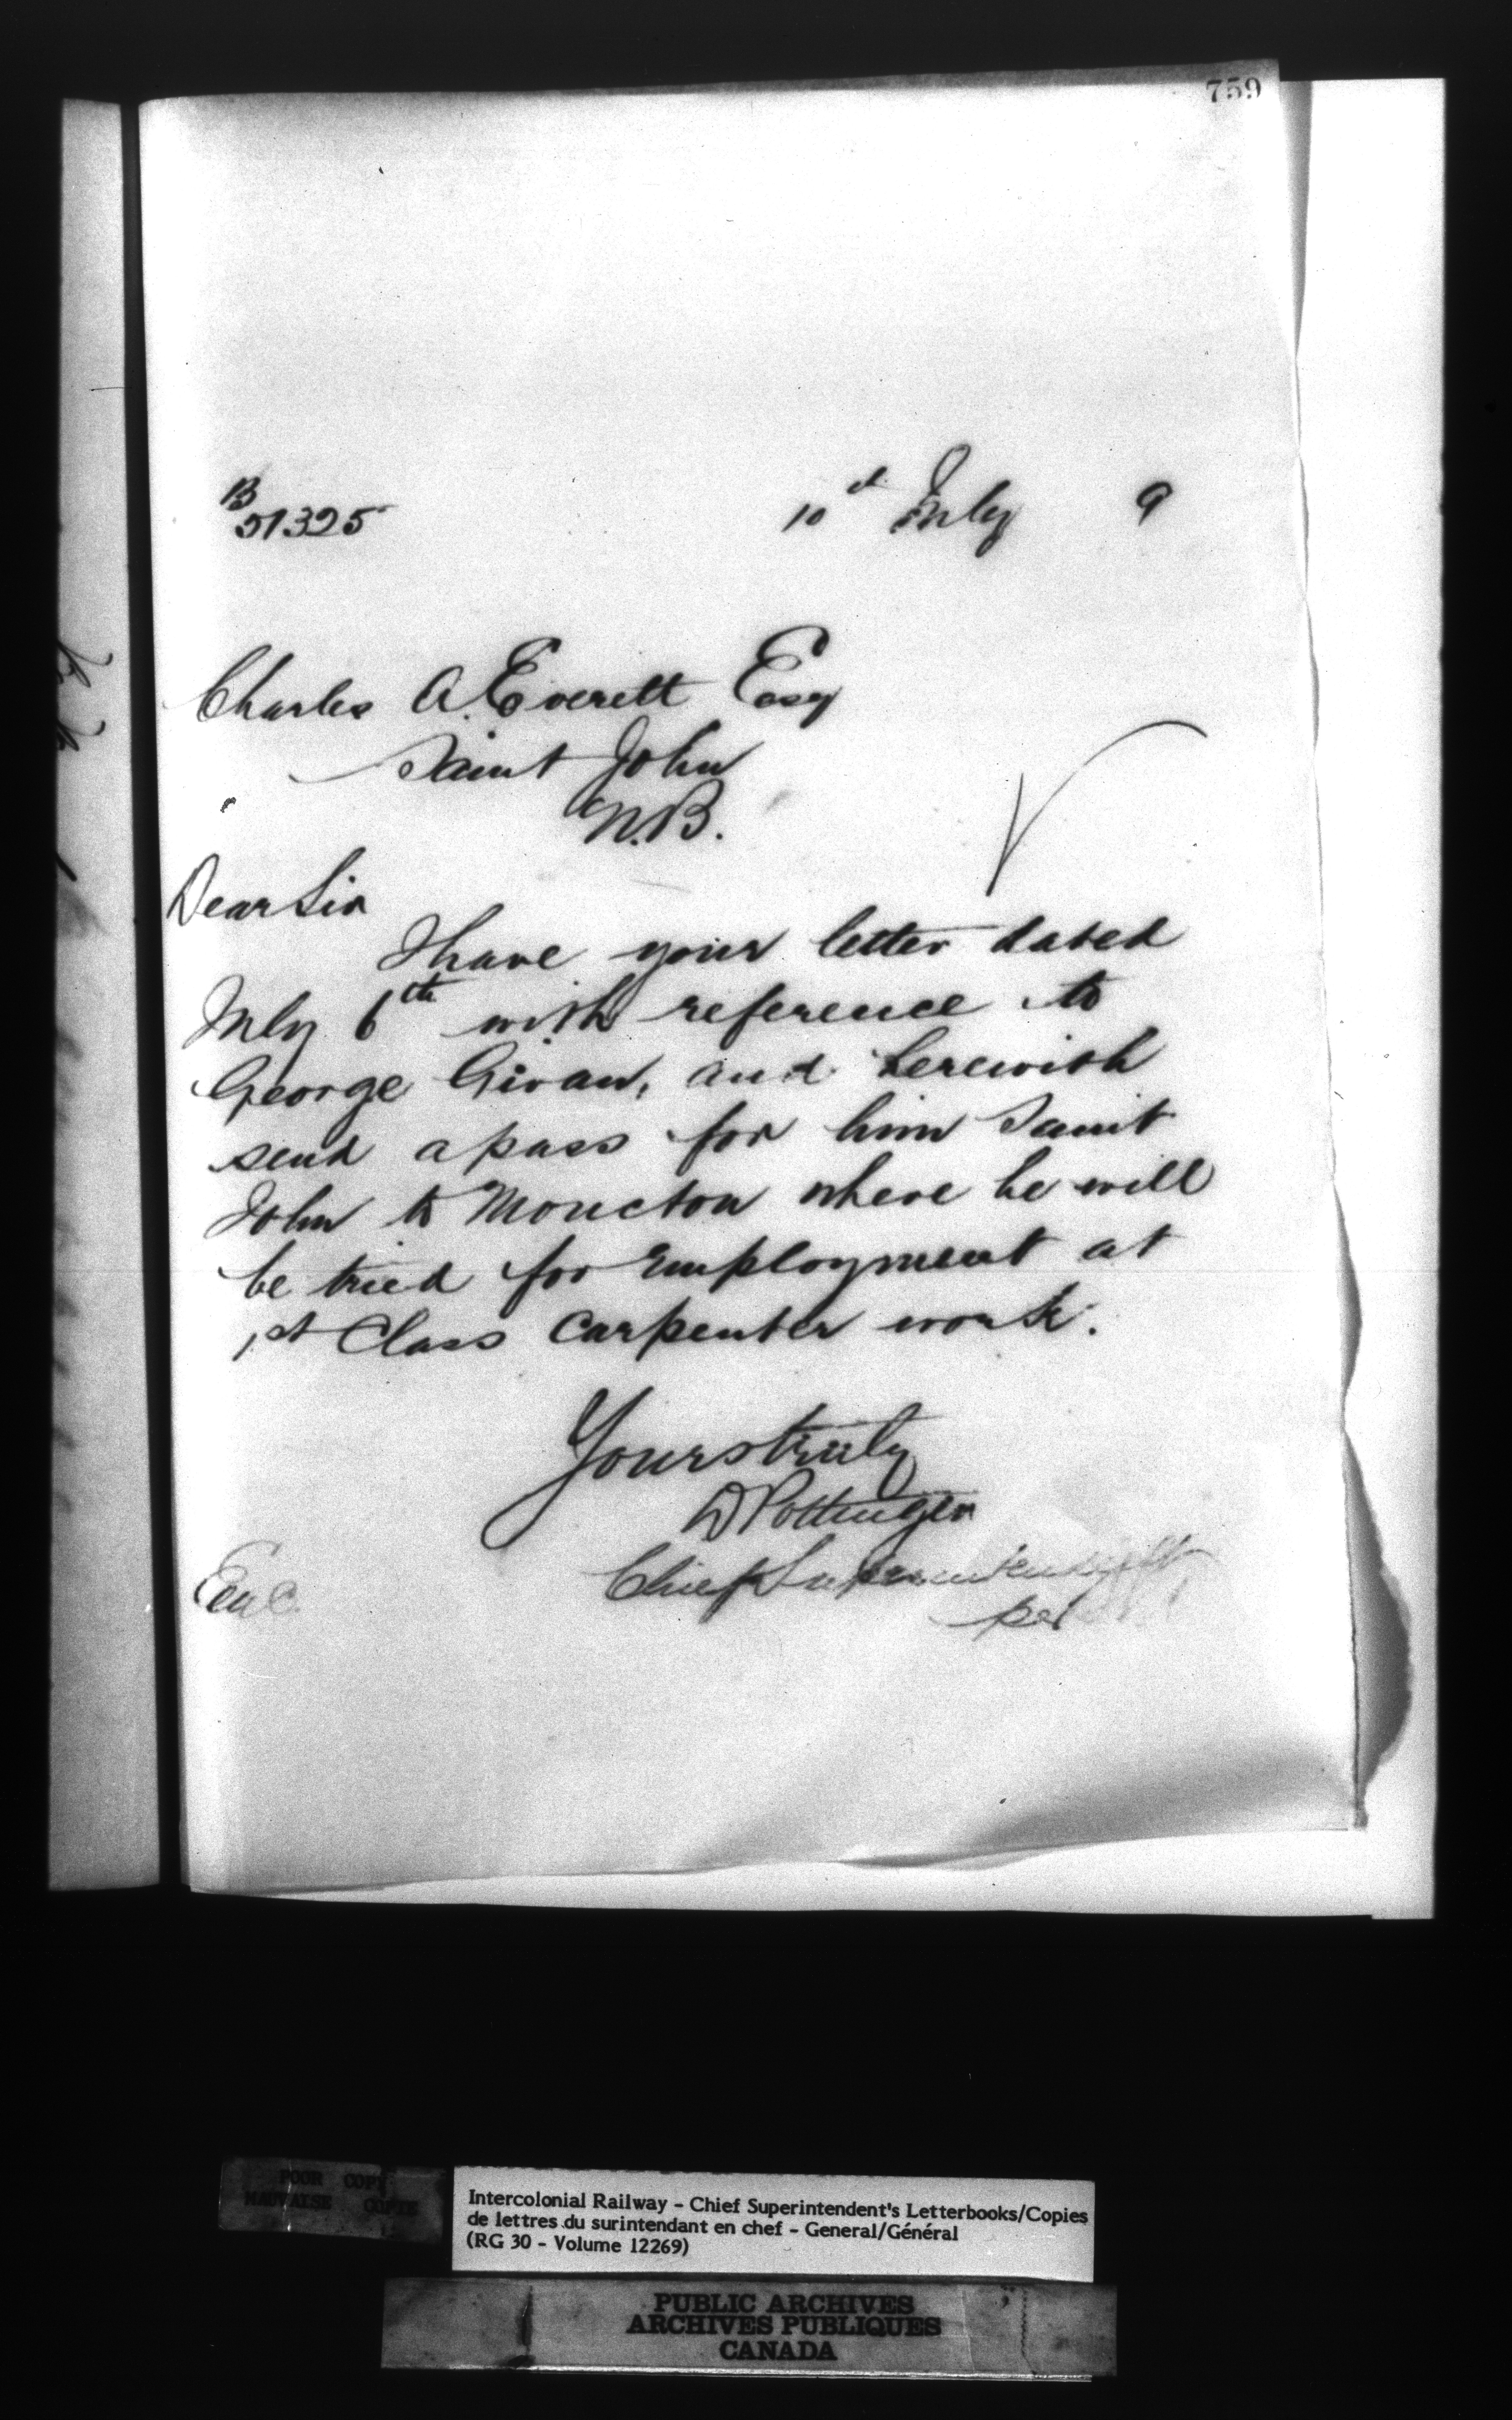 759
B
51325
10th July 9
Charles A. Everett Esq
Saint John
N.B.
Dear Sir
I have your letter dated
July 6th with reference to
George Givan, and herewith
send a pass for him Saint
John to Moncton where he will
be tried for employment at
1st Class Carpenter work.
Yours truly
D Pottinger
Chief Superintendent
per
Enc.
POOR COPY
MAUVAISE COPIE
Intercolonial Railway - Chief Superintendent's Letterbooks/Copies
de lettres du surintendant en chef - General/Général
(RG 30 - Volume 12269)
PUBLIC ARCHIVES
ARCHIVES PUBLIQUES
CANADA